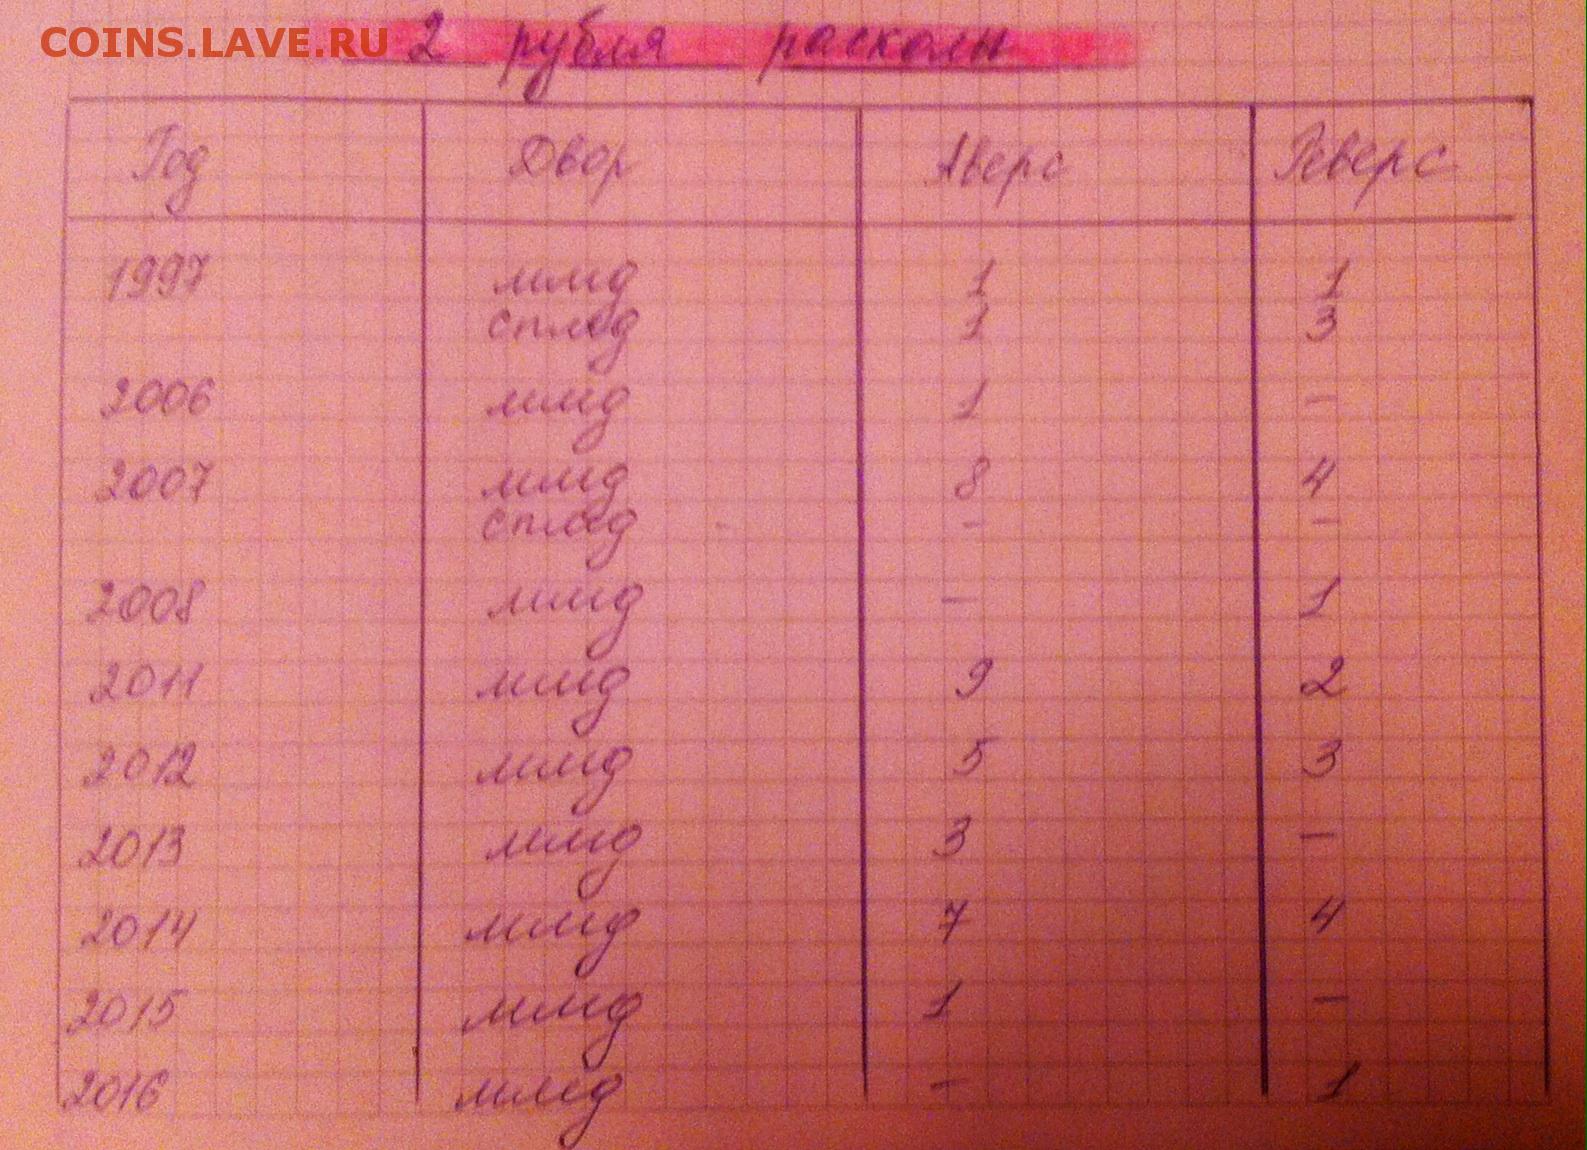 COINS.LAVE.RU
2 рубля расколы
Год Двор Аверс Реверс
1997 ммд 1 1
спмд 1 3
2006 ммд 1 –
2007 ммд 8 4
спмд – –
2008 ммд – 1
2011 ммд 9 2
2012 ммд 5 3
2013 ммд 3 –
2014 ммд 7 4
2015 ммд 1 –
2016 ммд – 1